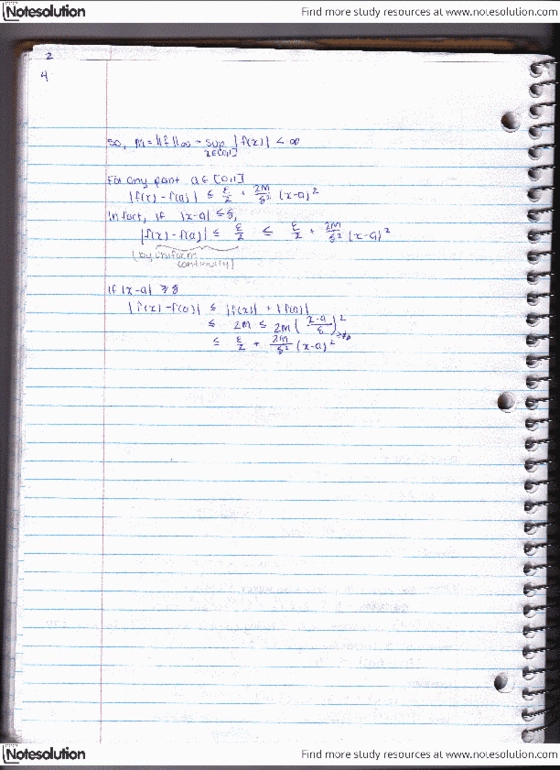 Notesolution
Find more study resources at www.notesolution.com
2
4
So, M = ||f||∞ = sup x∈[0,1] |f(x)| < ∞
For any point a ∈ [0,1]
|f(x) - f(a)| ≤ ε/2 + 2M/δ² (x-a)²
In fact, if |x-a| ≤ δ,
|f(x) - f(a)| ≤ ε/2 ≤ ε/2 + 2M/δ² (x-a)²
(by uniform
continuity)
If |x-a| ≥ δ
|f(x) - f(a)| ≤ |f(x)| + |f(a)|
≤ 2M ≤ 2M (x-a/δ)²
≤ ε/2 + 2M/δ² (x-a)²
Notesolution
Find more study resources at www.notesolution.com